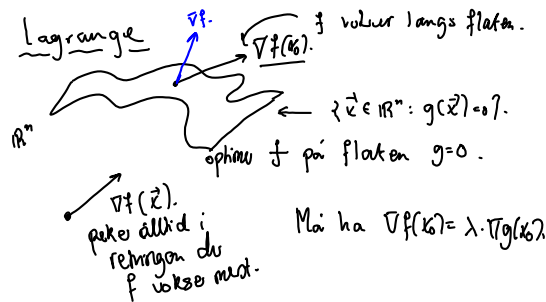 Lagrange
∇f.
f vokser langs flaten.
∇f(x₀).
ℝⁿ
{x⃗ ∈ ℝⁿ : g(x⃗) = 0}.
optimer f på flaten g=0.
∇f(x⃗).
peker alltid i
retningen du
f vokser mest.
Må ha ∇f(x₀) = λ·∇g(x₀).